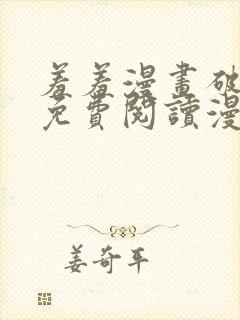 羞羞漫畫破
免費閱讀漫
姜奇平